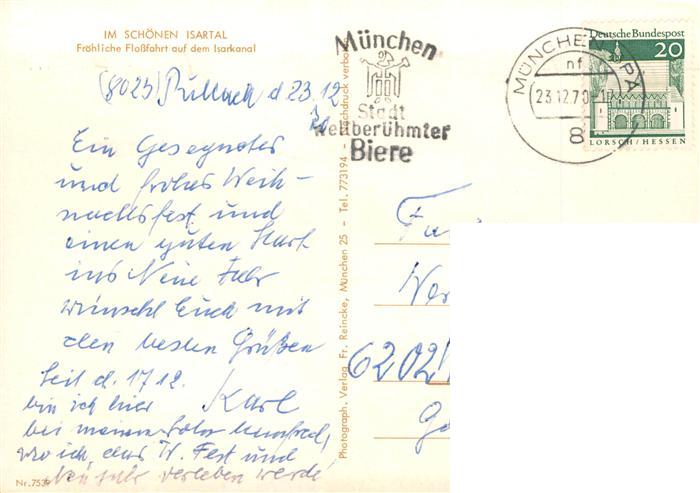 IM SCHÖNEN ISARTAL
Fröhliche Floßfahrt auf dem Isarkanal
(8023) Pullach d 23.12
70
Ein Gesegnetes
und frohes Weih-
nachtsfest und
einen guten Start
ins Neue Jahr
wünscht Euch mit
den besten Grüßen
Karl
Seit d. 17.12.
bin ich hier
bei meinem Sohn Manfred,
wo ich das W. Fest und
Neujahr verleben werde,
Nr. 753
Photograph. Verlag Fr. Reincke, München 25 - Tel. 773194 - Nachdruck verboten
München
Stadt
weltberühmter
Biere
MÜNCHEN PA
nf
23.12.70-17
8
Deutsche Bundespost
20
LORSCH/HESSEN
6202